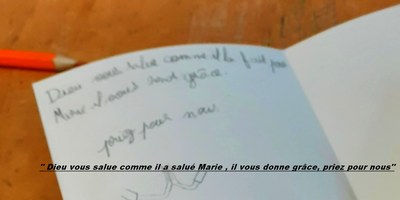 Dieu vous salue comme il l'a fait pour
Marie il vous rend grâce.
priez pour nous
" Dieu vous salue comme il a salué Marie , il vous donne grâce, priez pour nous"